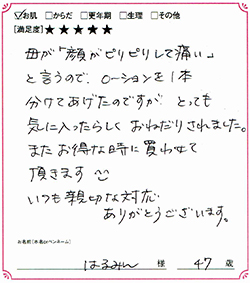 ☑お肌 □からだ □更年期 □生理 □その他
[満足度]★★★★★
母が「顔がピリピリして痛い」
と言うので、ローションを1本
分けてあげたのですが、とっても
気に入ったらしく おねだりされました。
また お得な時に 買わせて
頂きます
いつも 親切な対応
ありがとうございます。
お名前[本名orペンネーム]
はるみん 様 47歳